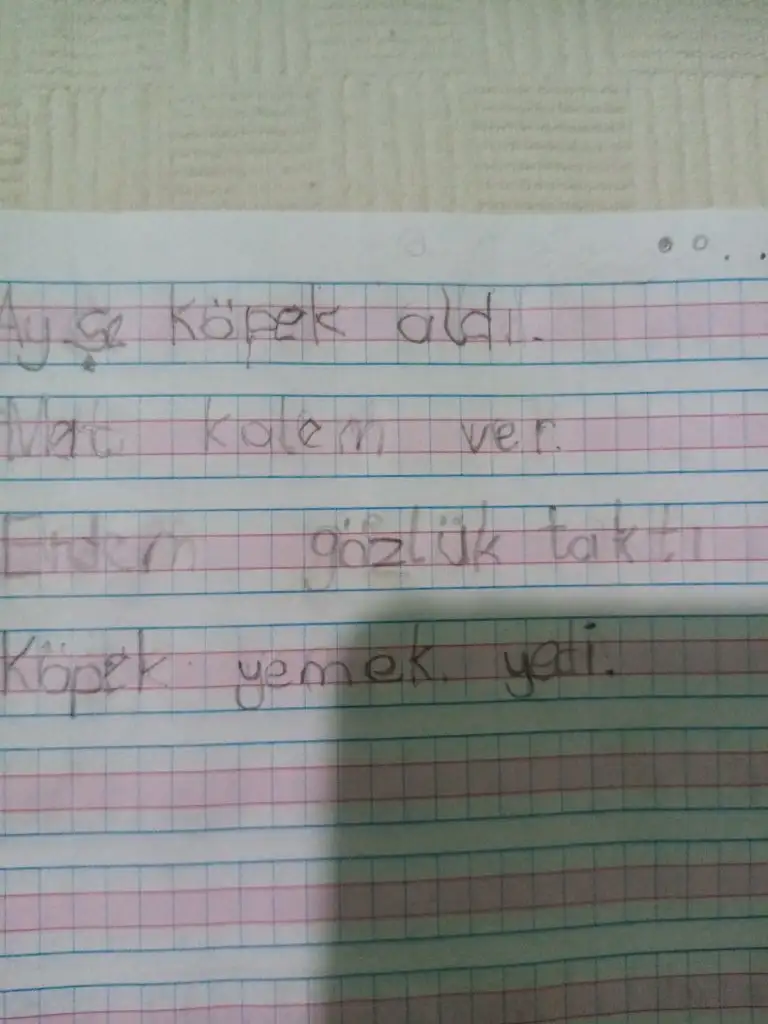 Ayşe köpek aldı.
Mert kalem ver.
Erdem gözlük taktı
Köpek yemek yedi.